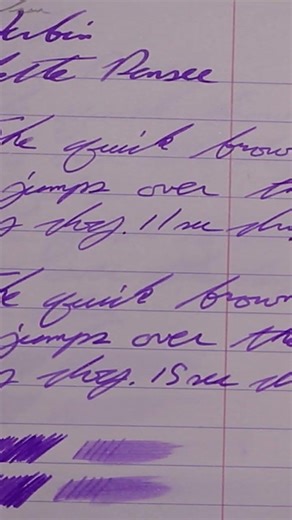 erbin
lette Pensee
The quick brown
jumps over th
dog. 11 sec
The quick brown
jumps over the
dog. 15 sec